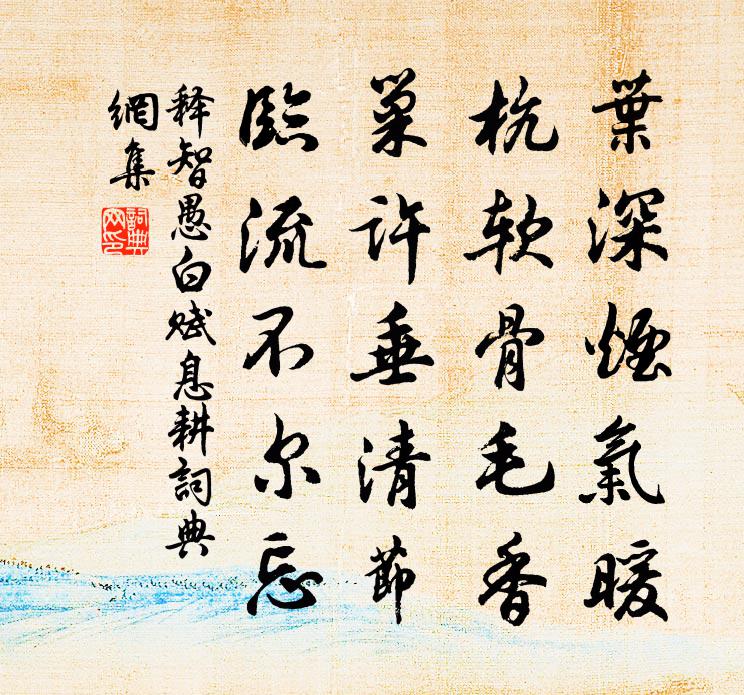 葉深煙氣暖
枕軟骨毛香
巢許垂清節
臨流不尔忘
释智愚白賦息耕詞典
網集
詞典
网印